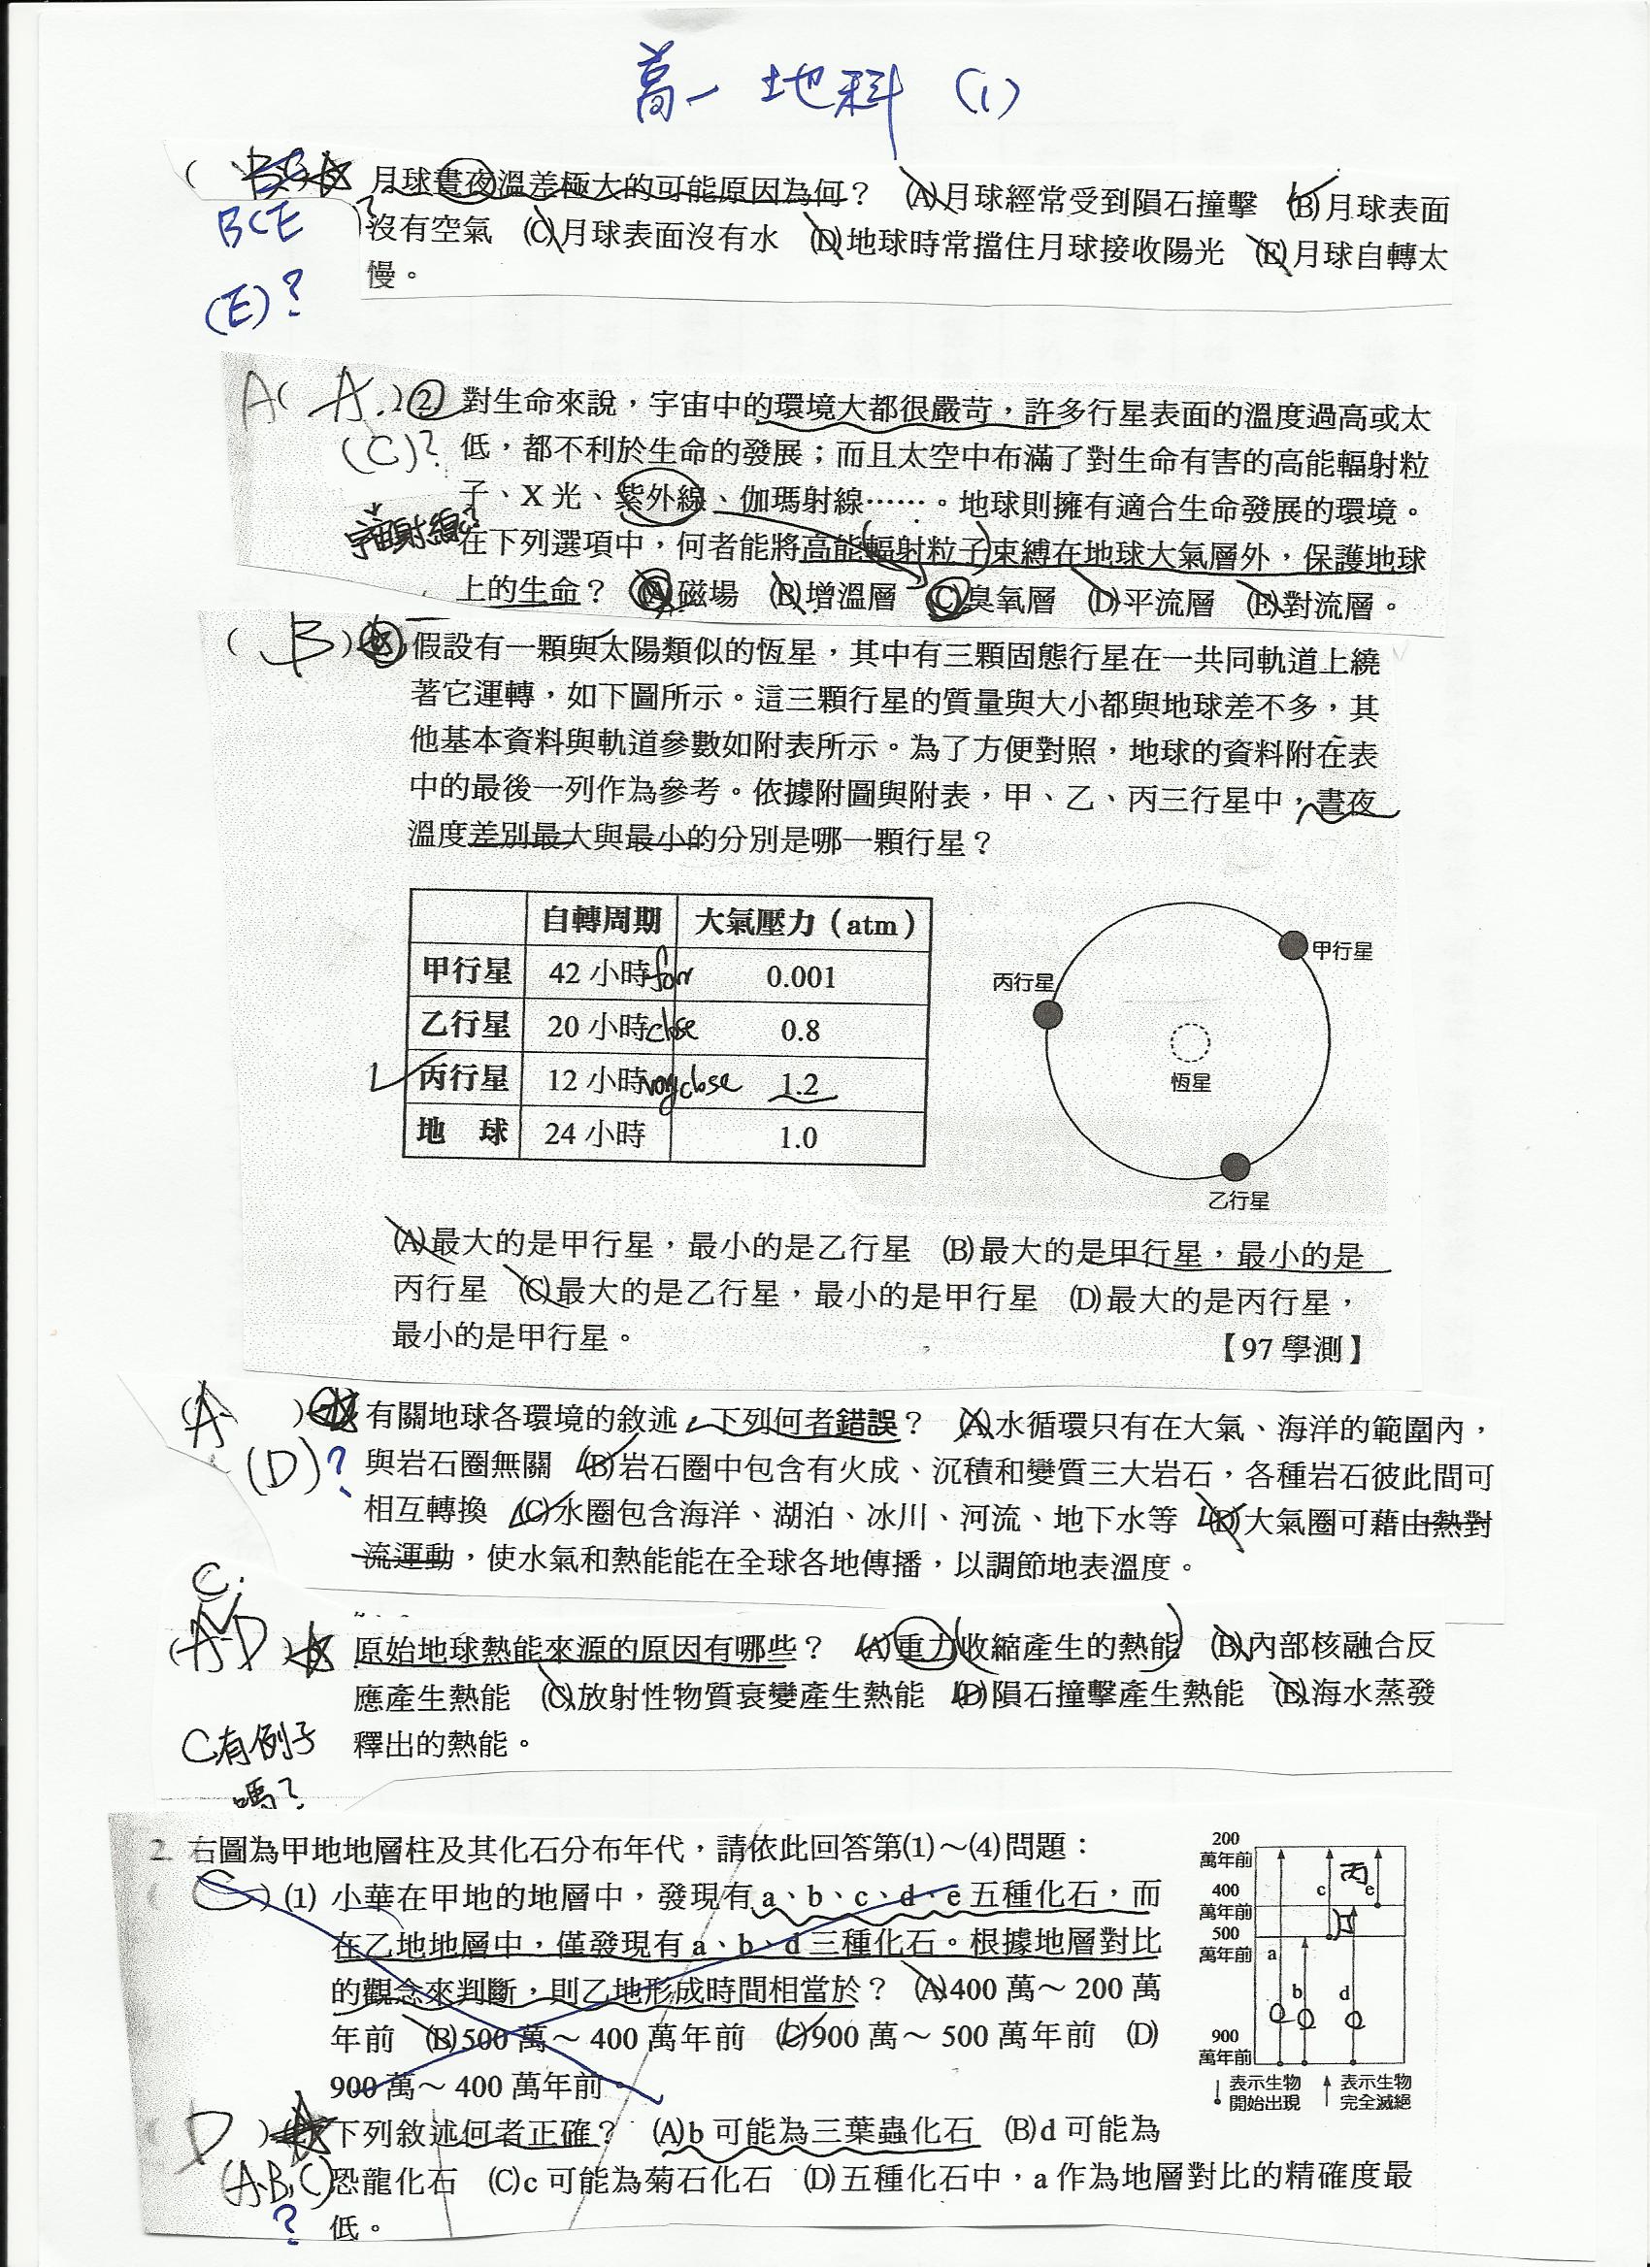 高一 地科 (1)
BCE
(E)?
月球晝夜溫差極大的可能原因為何？ (A)月球經常受到隕石撞擊 (B)月球表面
沒有空氣 (C)月球表面沒有水 (D)地球時常擋住月球接收陽光 (E)月球自轉太
慢。
A( A )2. 對生命來說，宇宙中的環境大都很嚴苛，許多行星表面的溫度過高或太
(C)? 低，都不利於生命的發展；而且太空中布滿了對生命有害的高能輻射粒
子、X光、紫外線、伽瑪射線……。地球則擁有適合生命發展的環境。
宇宙射線? 在下列選項中，何者能將高能輻射粒子束縛在地球大氣層外，保護地球
上的生命？ (A)磁場 (B)增溫層 (C)臭氧層 (D)平流層 (E)對流層。
( B ) 假設有一顆與太陽類似的恆星，其中有三顆固態行星在一共同軌道上繞
著它運轉，如下圖所示。這三顆行星的質量與大小都與地球差不多，其
他基本資料與軌道參數如附表所示。為了方便對照，地球的資料附在表
中的最後一列作為參考。依據附圖與附表，甲、乙、丙三行星中，晝夜
溫度差別最大與最小的分別是哪一顆行星？
自轉周期 大氣壓力（atm）
甲行星 42 小時 far 0.001
乙行星 20 小時 close 0.8
丙行星 12 小時 very close 1.2
地 球 24 小時 1.0
甲行星
丙行星
恆星
乙行星
(A)最大的是甲行星，最小的是乙行星 (B)最大的是甲行星，最小的是
丙行星 (C)最大的是乙行星，最小的是甲行星 (D)最大的是丙行星，
最小的是甲行星。
【97 學測】
(A ) 有關地球各環境的敘述，下列何者錯誤？ (A)水循環只有在大氣、海洋的範圍內，
(D)? 與岩石圈無關 (B)岩石圈中包含有火成、沉積和變質三大岩石，各種岩石彼此間可
相互轉換 (C)水圈包含海洋、湖泊、冰川、河流、地下水等 (D)大氣圈可藉由熱對
流運動，使水氣和熱能能在全球各地傳播，以調節地表溫度。
C
(AD ) 原始地球熱能來源的原因有哪些？ (A)重力收縮產生的熱能 (B)內部核融合反
應產生熱能 (C)放射性物質衰變產生熱能 (D)隕石撞擊產生熱能 (E)海水蒸發
C有例子 釋出的熱能。
嗎？
2. 右圖為甲地地層柱及其化石分布年代，請依此回答第(1)～(4)問題：
( C ) (1) 小華在甲地的地層中，發現有 a、b、c、d、e 五種化石，而
在乙地地層中，僅發現有 a、b、d 三種化石。根據地層對比
的觀念來判斷，則乙地形成時間相當於？ (A)400 萬～ 200 萬
年前 (B)500 萬～ 400 萬年前 (C)900 萬～ 500 萬年前 (D)
900 萬～ 400 萬年前。
200
萬年前
400
萬年前
500
萬年前
900
萬年前
a
b
c
d
e
丙
表示生物
開始出現
表示生物
完全滅絕
( D ) 下列敘述何者正確？ (A)b 可能為三葉蟲化石 (B)d 可能為
(A.B.C) 恐龍化石 (C)c 可能為菊石化石 (D)五種化石中，a 作為地層對比的精確度最
? 低。